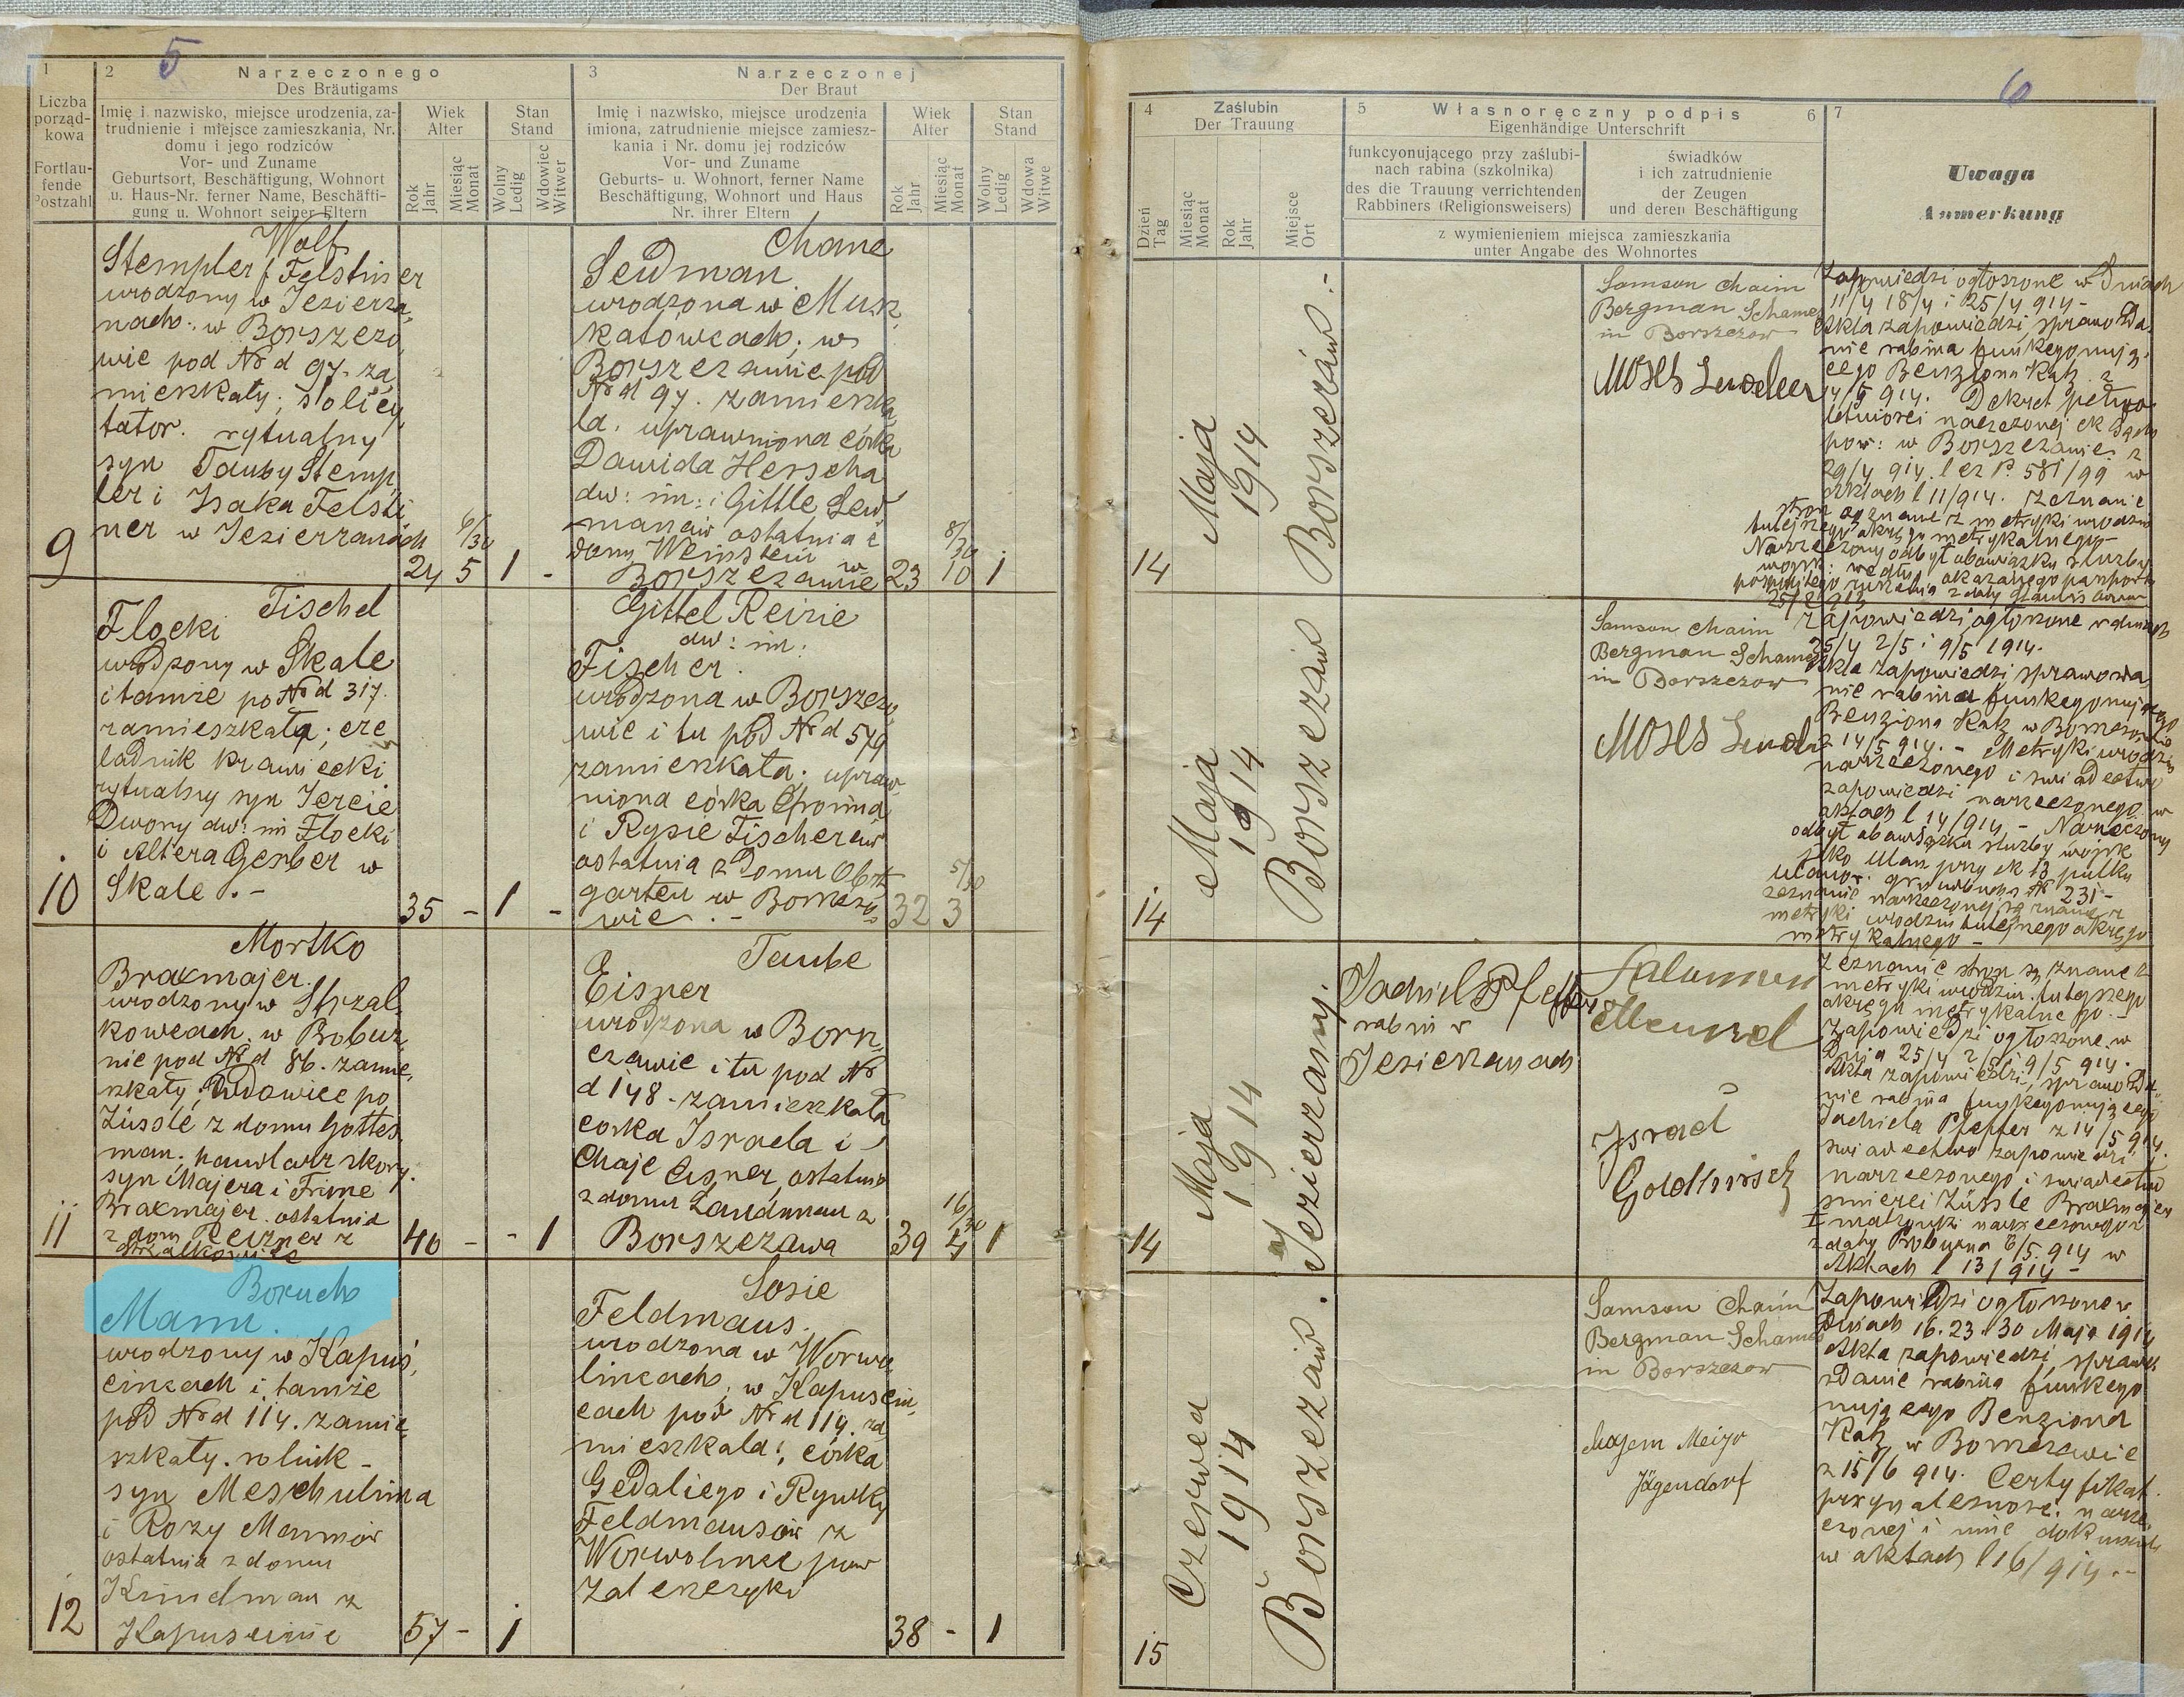 5
1
Liczba
porząd-
kowa
Fortlau-
fende
Postzahl
2
Narzeczonego
Des Bräutigams
Imię i nazwisko, miejsce urodzenia, za-
trudnienie i miejsce zamieszkania, Nr.
domu i jego rodziców
Vor- und Zuname
Geburtsort, Beschäftigung, Wohnort
u. Haus-Nr. ferner Name, Beschäfti-
gung u. Wohnort seiner Eltern
Wiek
Alter
Rok
Jahr
Miesiąc
Monat
Stan
Stand
Wolny
Ledig
Wdowiec
Witwer
3
Narzeczonej
Der Braut
Imię i nazwisko, miejsce urodzenia
imiona, zatrudnienie miejsce zamiesz-
kania i Nr. domu jej rodziców
Vor- und Zuname
Geburts- u. Wohnort, ferner Name
Beschäftigung, Wohnort und Haus
Nr. ihrer Eltern
Wiek
Alter
Rok
Jahr
Miesiąc
Monat
Stan
Stand
Wolny
Ledig
Wdowa
Witwe
9
Wolf
Stempler f Felstiner
urodzony w Jezierza-
nach. w Borszczo
wie pod Nr d 97. za
mieszkały; solicy
tator. rytualny
syn Tauby Stemp
ler i Isaka Felsti
ner w Jezierzanach
24 5 6/30 1 -
Chane
urodzona w Musz
katowcach; w
Borszczowie pod
Nr d 97. zamieszka
ła. uprawniona córka
Dawida Herscha
dw: im: i Gittle
ostatnia z
domu Weinstein w
Borszczowie
23 10 8/30 1
10
Fischel
Flocki
urodzony w Skale
i tamże po Nr d 317.
zamieszkały; cze
ladnik krawiecki
rytualny syn
Dwory dw: im Flocki
i Altera Gerber w
Skale . -
35 - 1 -
Gittel Reizie
dw: im:
Fischer.
urodzona w Borszczo
wie i tu pod Nr d 579
zamieszkała; upraw
niona córka Efroima
i Rysie Fischerów
ostatnia z domu
garten w Borszczo
wie . -
32 3 5/30
11
Mortko
Brakmajer.
urodzony w Strzał-
kowcach. w Bobuż
nie pod Nr d 86. zamie
szkały; Wdowiec po
Züssle z domu Gottes
man. handlarz skory.
syn Majera i Frime
Brakmajer. ostatnia
z dom Reizner z
Strzałkowiec
40 - - 1
Taube
Eisner
urodzona w Borsz
czowie i tu pod Nr
d 148. zamieszkała
córka Israela i
Chaje Eisner, ostatnia
z domu Landman z
Borszczowa
39 4 16/30 1
12
Boruch
Mann.
urodzony w Kapuś
cincach i tamże
pod Nr d 114. zamie
szkały. rolnik -
syn Meschulima
i Rozy Mannów
ostatnia z domu
Kapuściniec
57 - 1
Sosie
Feldmaus.
urodzona w Worwo
lincach; w Kapuscin
cach pod Nr d 114. za
mieszkala; córka
Gedaliego i Rywki
Feldmausów z
Worwoliniec pow
Zaleszczyki
38 - 1
6
4
Zaślubin
Der Trauung
Dzień
Tag
Miesiąc
Monat
Rok
Jahr
Miejsce
Ort
5
Własnoręczny podpis
Eigenhändige Unterschrift
6
funkcyonującego przy zaślubi-
nach rabina (szkolnika)
des die Trauung verrichtenden
Rabbiners (Religionsweisers)
świadków
i ich zatrudnienie
der Zeugen
und deren Beschäftigung
z wymienieniem miejsca zamieszkania
unter Angabe des Wohnortes
7
Uwaga
Anmerkung
14
Maja
1914
Borszczów.-
Samson Chaim
Bergman Schames
in Borszczow
Zapowiedzi ogłoszone w dniach
11/4 18/4 i 25/4 914 -
Akta zapowiedzi, sprawozda
nie rabina funkcyonują-
cego Benziona Katz z
14/5 914. Dekret pełno
letniości narzeczonej ck Sądu
pow: w Borszczowie z
29/4 914. l cz P. 581/99 w
aktach l 11/914. zeznanie
stron są znane z metryki urodzin
tutejszego okręgu metrykalnego -
Narzeczony odbył obowiązku służby
14
Maja
1914
Borszczów
Samson Chaim
Bergman Schames
in Borszczow
Zapowiedzi ogłoszone w dniach
25/4 2/5 i 9/5 1914.
Akta zapowiedzi, sprawozda
nie rabina funkcyonującego
Benziona Katz w Borszczowie
z 14/5 914. - Metryki urodzin
narzeczonego i świadectwo
zapowiedzi narzeczonego w
aktach l 14/914 - Narzeczony
odbył obowiązku służby wojsk
jako ułan przy ck 13 pułku
metryki urodzin tutejszego okręgu
metrykalnego -
14
Maja
1914
w Jezierzanny.
Jachiel Pfeffer
rabin w
Jezierzanach
Salamon
Israel
Goldhirsch
Zeznanie stron są znane z
metryki urodzin. tutejszego
okręgu metrykalne go. -
Zapowiedzi ogłoszone w
Dnia 25/4 2/5 i 9/5 914.
Akta zapowiedzi, sprawozda
nie rabina funkcyonującego
Jachiela Pfeffer z 14/5 914.
świadectwo zapowiedzi
narzeczonego i świadectwo
śmierci Züssle Brakmajer
I małżonki narzeczonego z
z daty Probużna 6/5. 914 w
Aktach l 13/914 -
15
Czerwca
1914
Borszczów.
Samson Chaim
Bergman Schames
in Borszczow
Jägendorf
Zapowiedzi ogłoszone w
dniach 16. 23 i 30 Maja 1914
Akta zapowiedzi, sprawo
zdanie rabina funkcyo
nującego Benziona
Katz w Borszczowie
z 15/6 914. Certyfikat
przynależność. narze
czonej i inne dokumenta
w aktach l 16/914. -